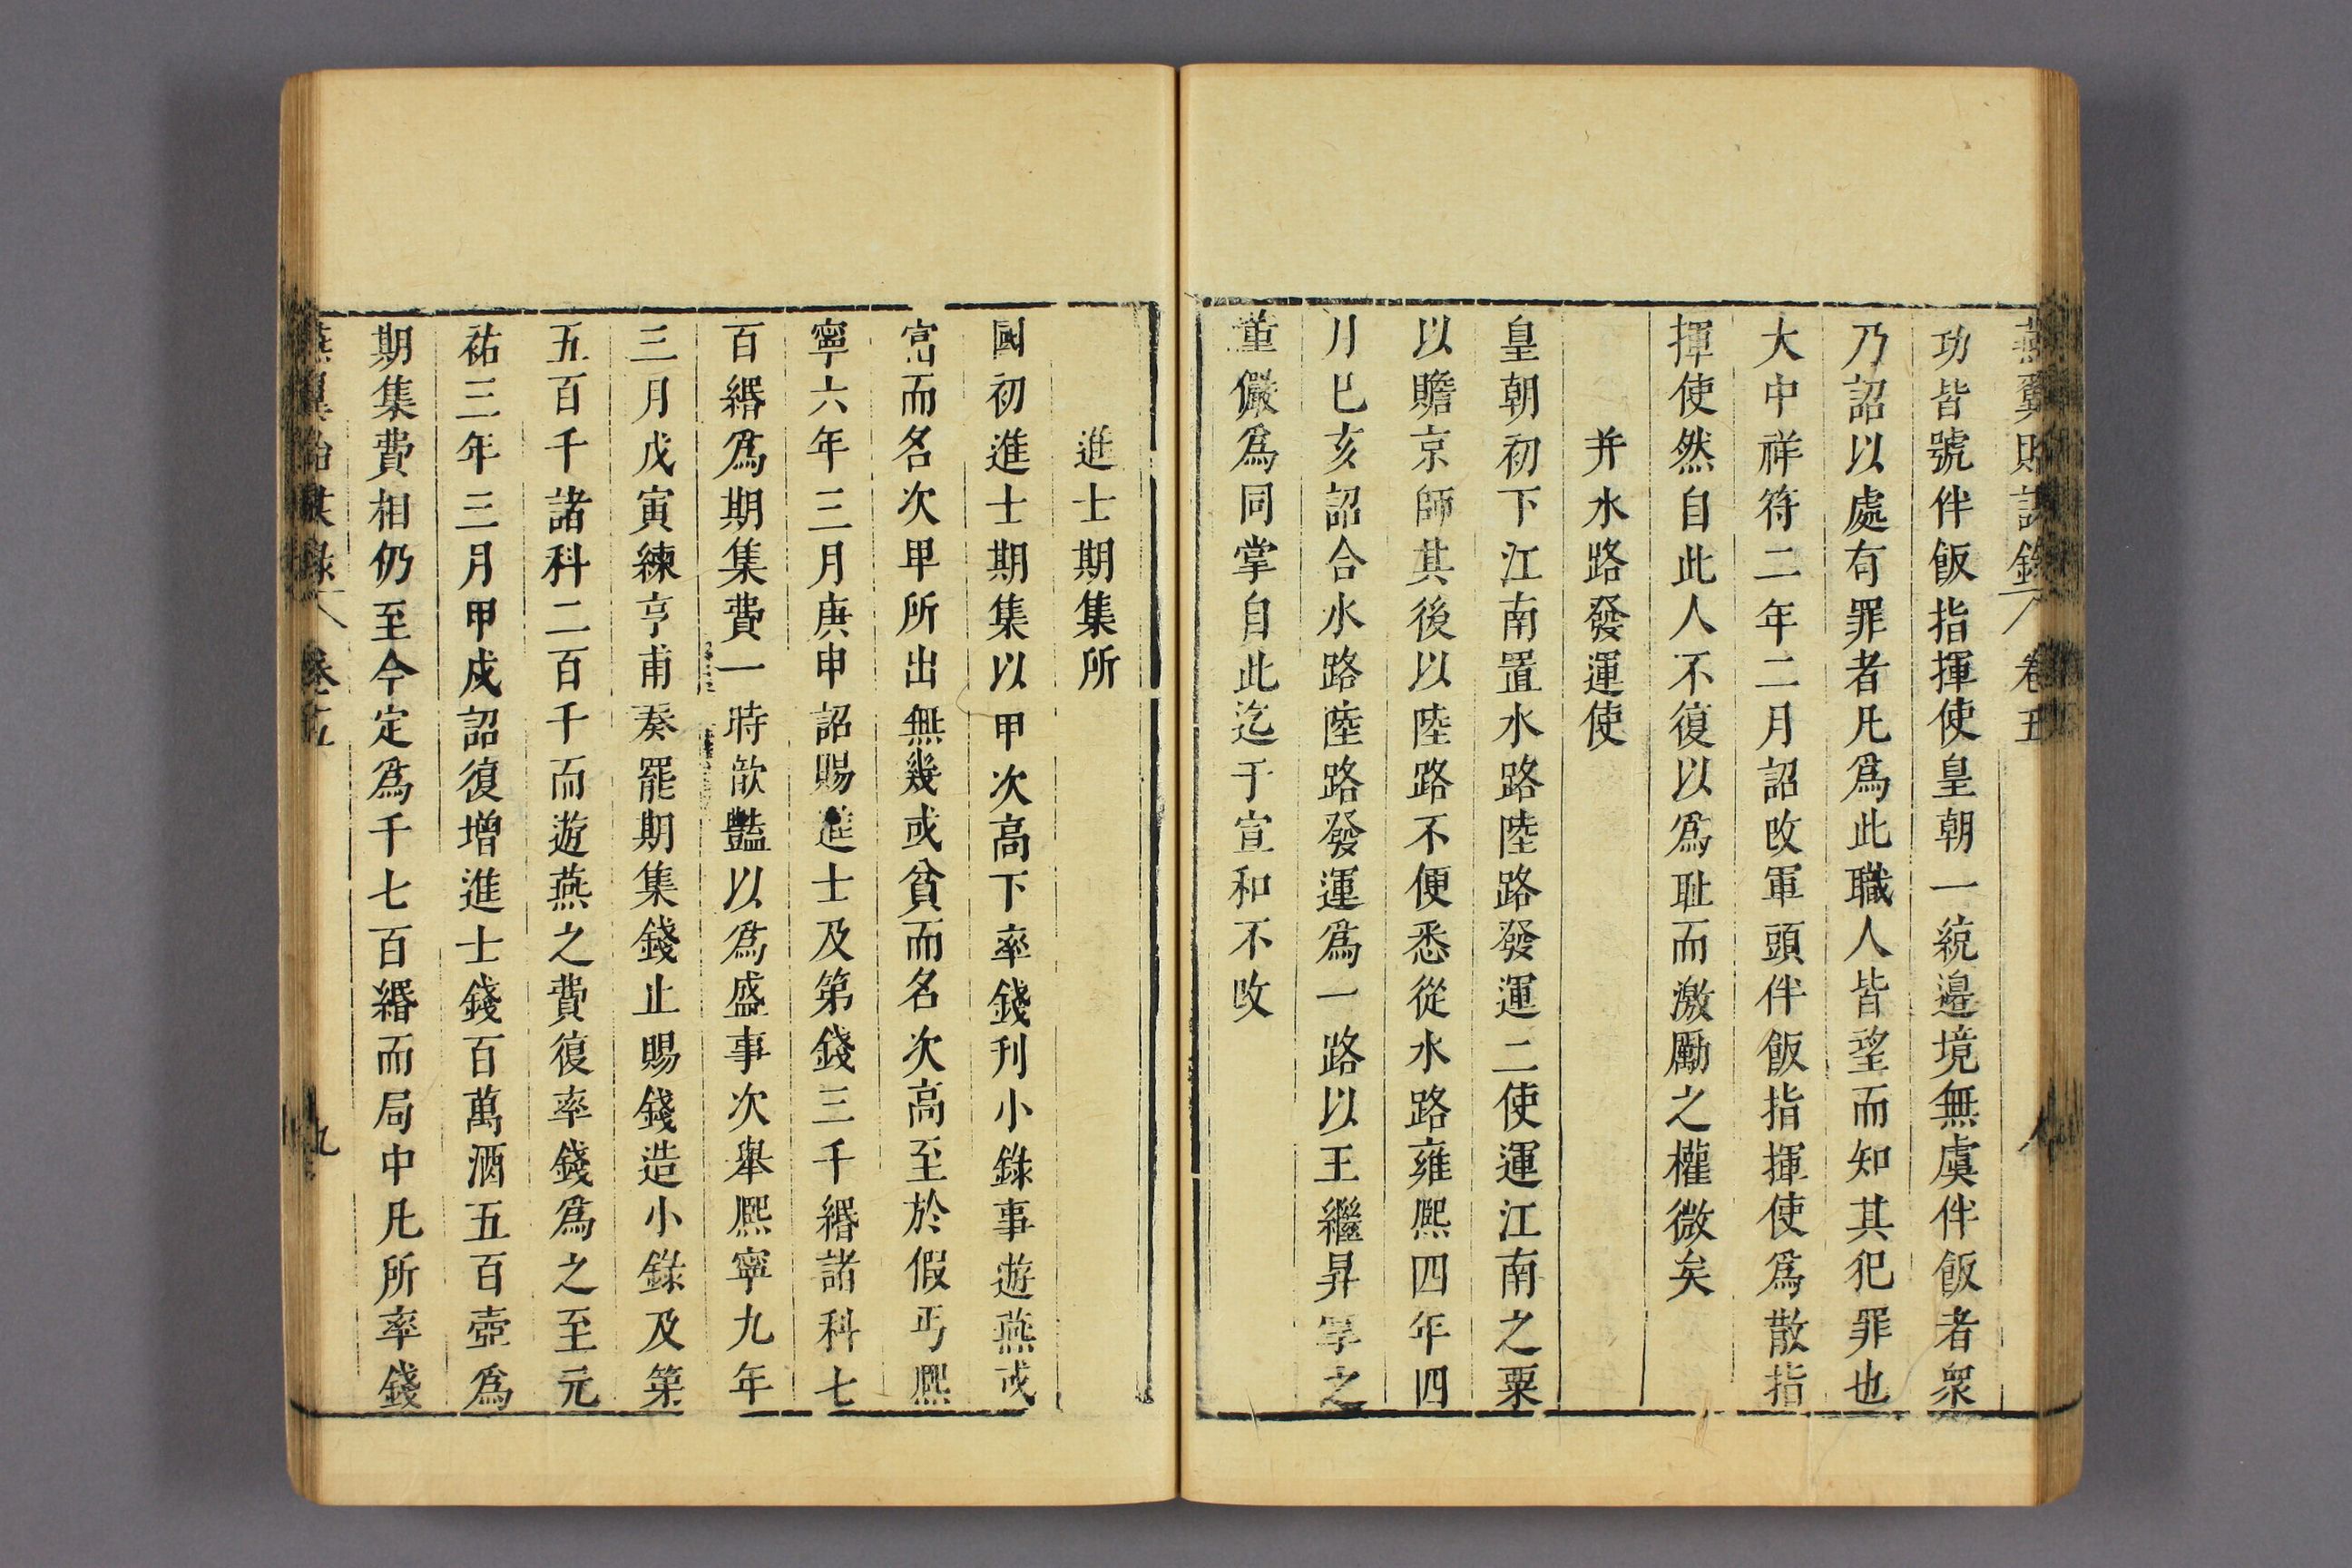 燕翼貽謀錄 卷五 八
功皆號伴飯指揮使皇朝一統邊境無虞伴飯者衆
乃詔以處有罪者凡爲此職人皆望而知其犯罪也
大中祥符二年二月詔改軍頭伴飯指揮使爲散指
揮使然自此人不復以爲耻而激勵之權微矣
并水路發運使
皇朝初下江南置水路陸路發運二使運江南之粟
以贍京師其後以陸路不便悉從水路雍熙四年四
月巳亥詔合水路陸路發運爲一路以王繼昇掌之
董儼爲同掌自此迄于宣和不改
進士期集所
國初進士期集以甲次高下率錢刊小錄事遊燕或
富而名次甲所出無幾或貧而名次高至於假丐熙
寧六年三月庚申詔賜進士及第錢三千緡諸科七
百緡爲期集費一時歆豔以爲盛事次舉熙寧九年
三月戊寅練亨甫奏罷期集錢止賜錢造小錄及第
五百千諸科二百千而遊燕之費復率錢爲之至元
祐三年三月甲戌詔復增進士錢百萬酒五百壺爲
期集費相仍至今定爲千七百緡而局中凡所率錢
燕翼貽謀錄 卷五 九